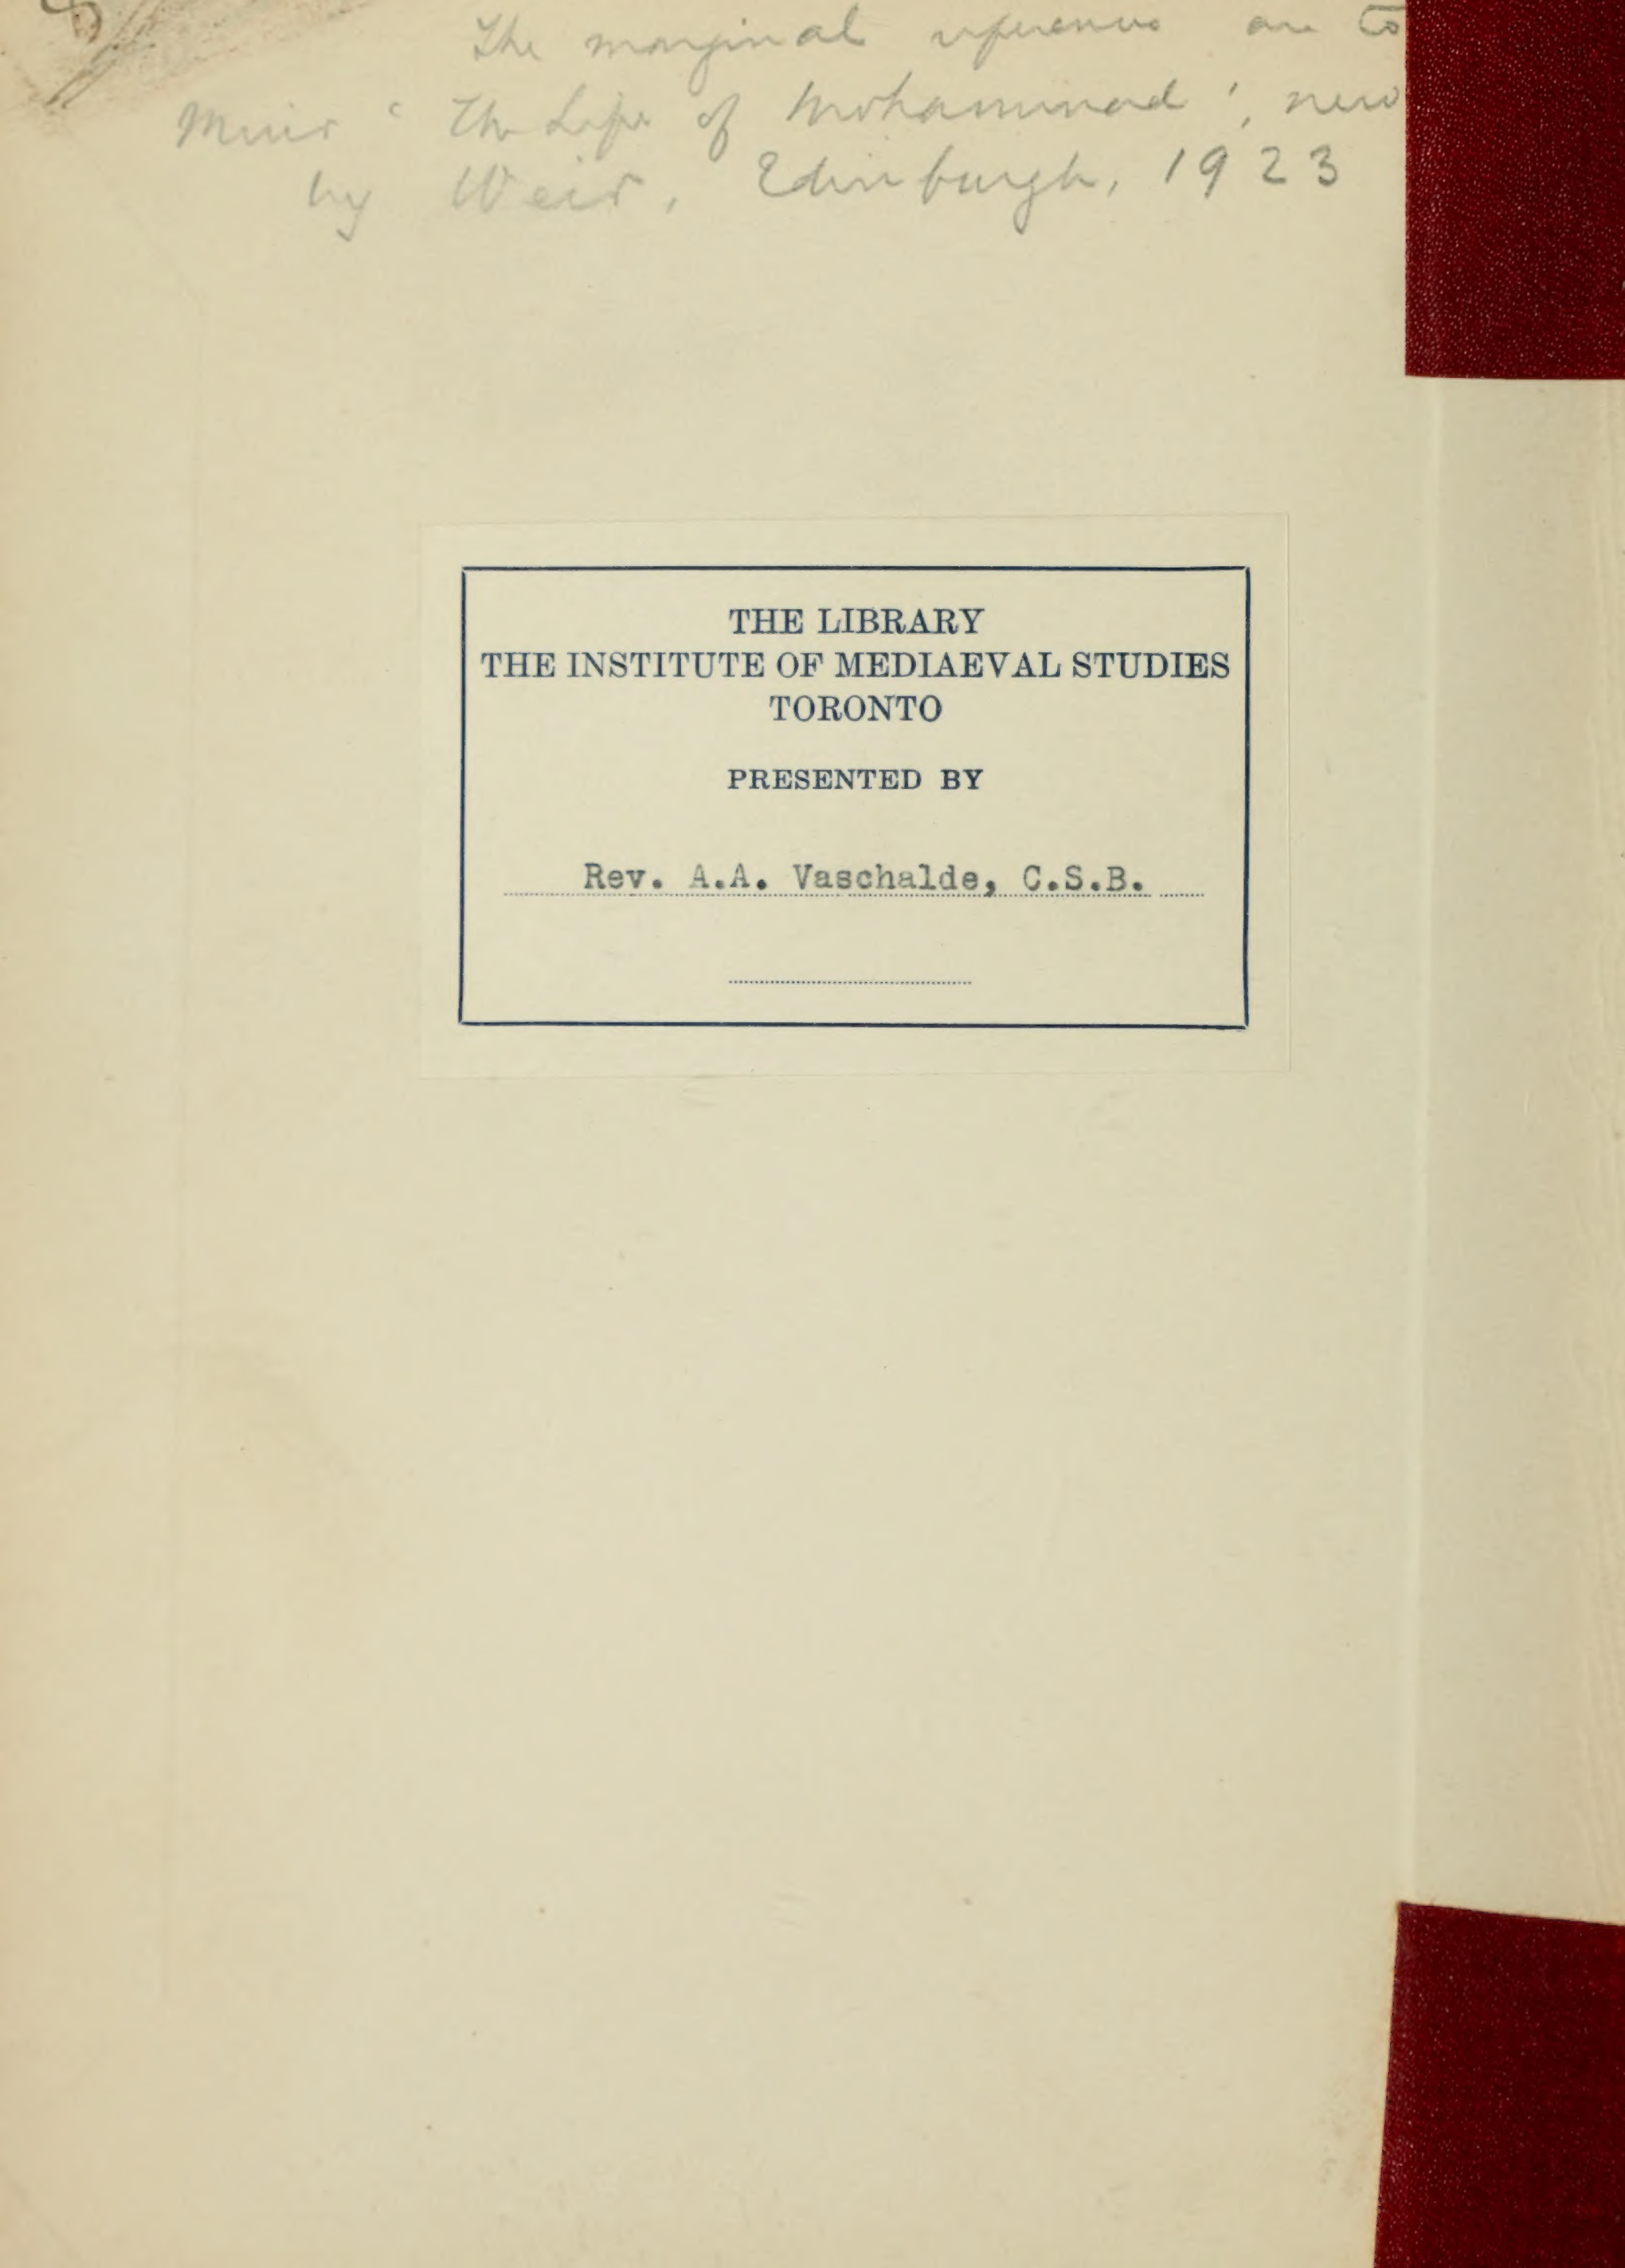 The marginal references are to
Muir ' The Life of Mohammad ', new
by Weir, Edinburgh, 1923
THE LIBRARY
THE INSTITUTE OF MEDIAEVAL STUDIES
TORONTO
PRESENTED BY
Rev. A.A. Vaschalde, C.S.B.